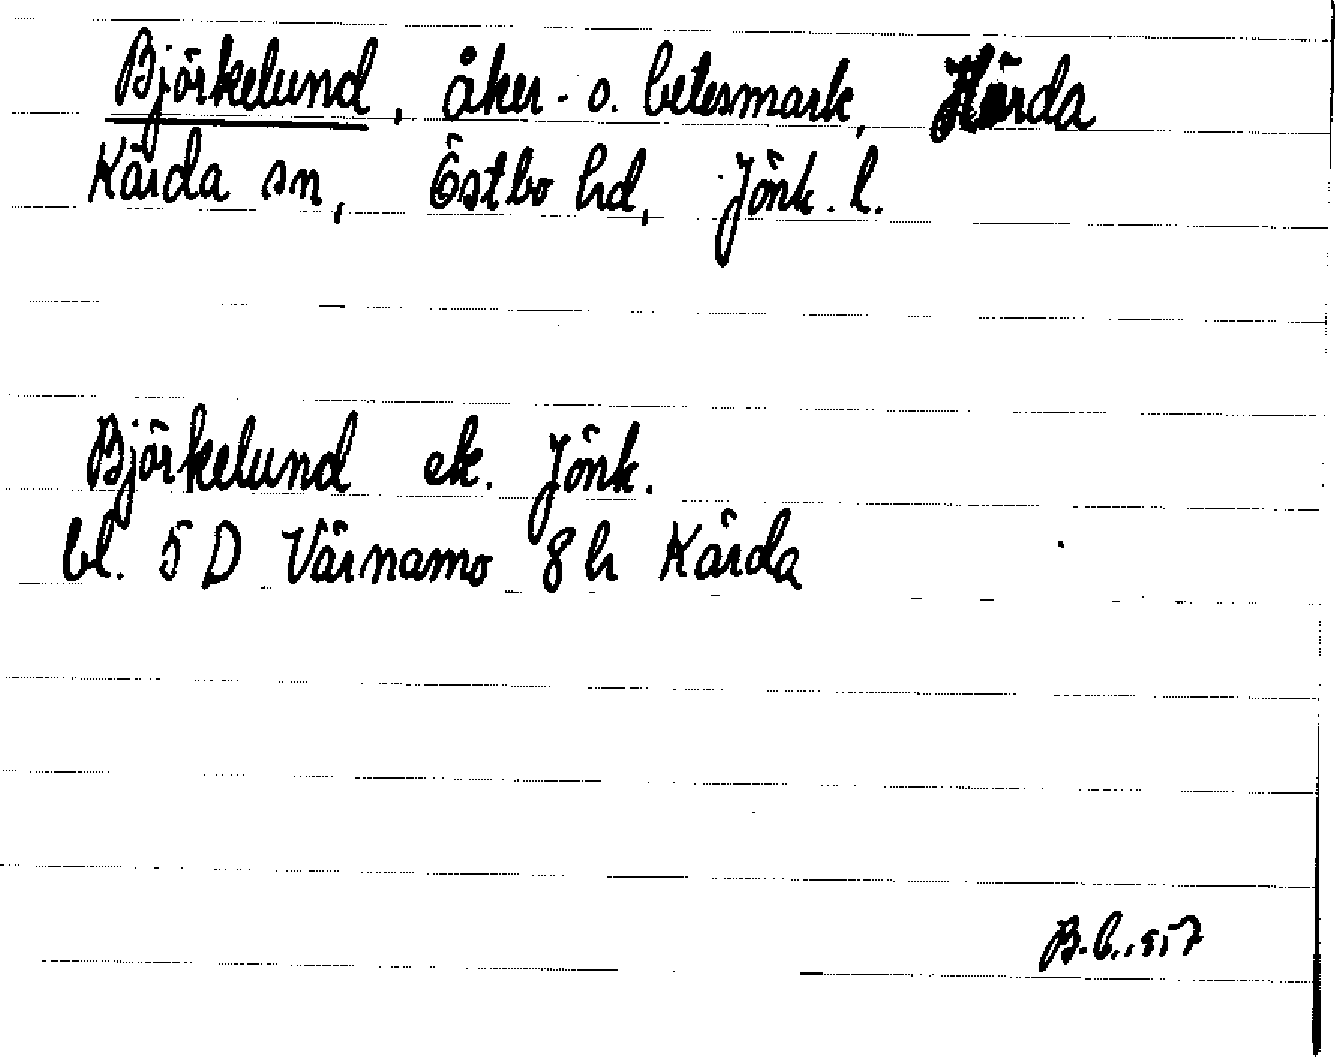 Björkelund, åker- o. betesmark, Hörda
Kärda sn, Östbo hd, Jönk. l.
Björkelund ek. Jönk.
bl. 5 D Värnamo 8 h Kärda